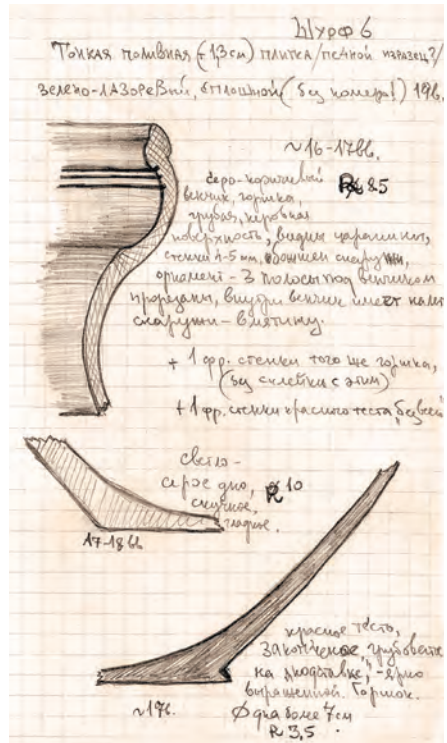 Шурф 6
Тонкая поливная (~1,3 см) плитка /печной изразец?/
зелено-лазоревый, сплошной (без номера!) 19в.
~16-17вв.
серо-коричневый R 8.5
венчик, горшка,
грубая, неровная
поверхность, видны царапины,
стенки 4-5 мм, снаружи,
орнамент - 3 полосы под венчиком
прорезаны, внутри венчик имеет
снаружи - вмятину.
+ 1 фр. стенки того же горшка,
(без склейки с этим)
+ 1 фр. стенки красного теста,
светло-
серое дно, R 10
скучное,
гладкое.
17-18 вв
красное тесто,
закопченое, грубоватое
на "подставке", - ярко
выраженной. Горшок.
~17в. Ø дна более 7см
R 3,5